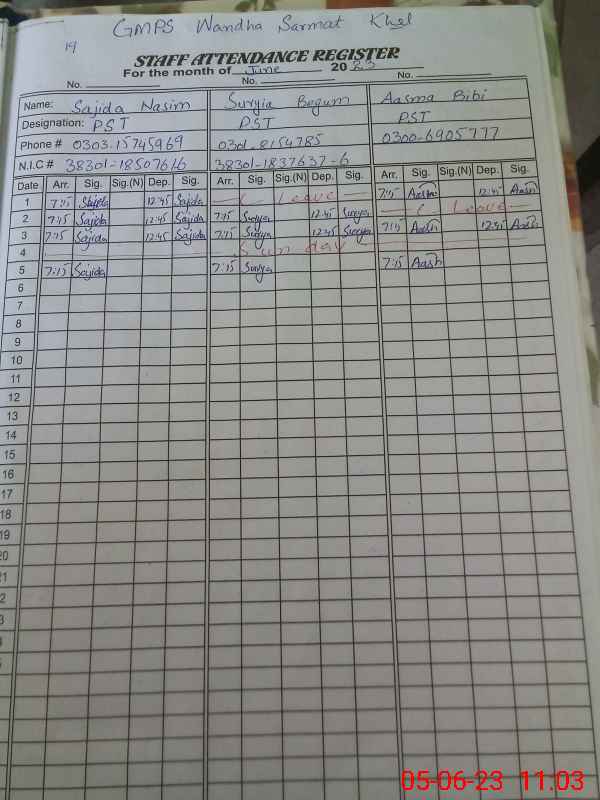 GMPS Wandha Sarmat Khel
19
STAFF ATTENDANCE REGISTER
For the month of June 2023
No. No. No.
Name: Sajida Nasim Suryia Begum Aasma Bibi
Designation: PST PST PST
Phone # 0303-15745969 0301-8154785 0300-6905777
N.I.C # 38301-1837637-6
Date Arr. Sig. Sig.(N) Dep. Sig. Arr. Sig. Sig.(N) Dep. Sig. Arr. Sig. Sig.(N) Dep. Sig.
1 7:15 12:45 Sajida Leave 7:15 Aasma 12:45 Aasm
2 7:15 Sajida 12:45 Sajida 7:15 Surya 12:45 Surya Leave
3 7:15 Sajida 12:45 Sajida 7:15 Surya 12:45 Surya 7:15 Aasm 12:45 Aasm
4 Sunday
5 7:15 Sajida 7:15 Surya 7:15 Aasm
6
7
8
9
10
11
12
13
14
15
16
17
18
19
20
05-06-23 11.03